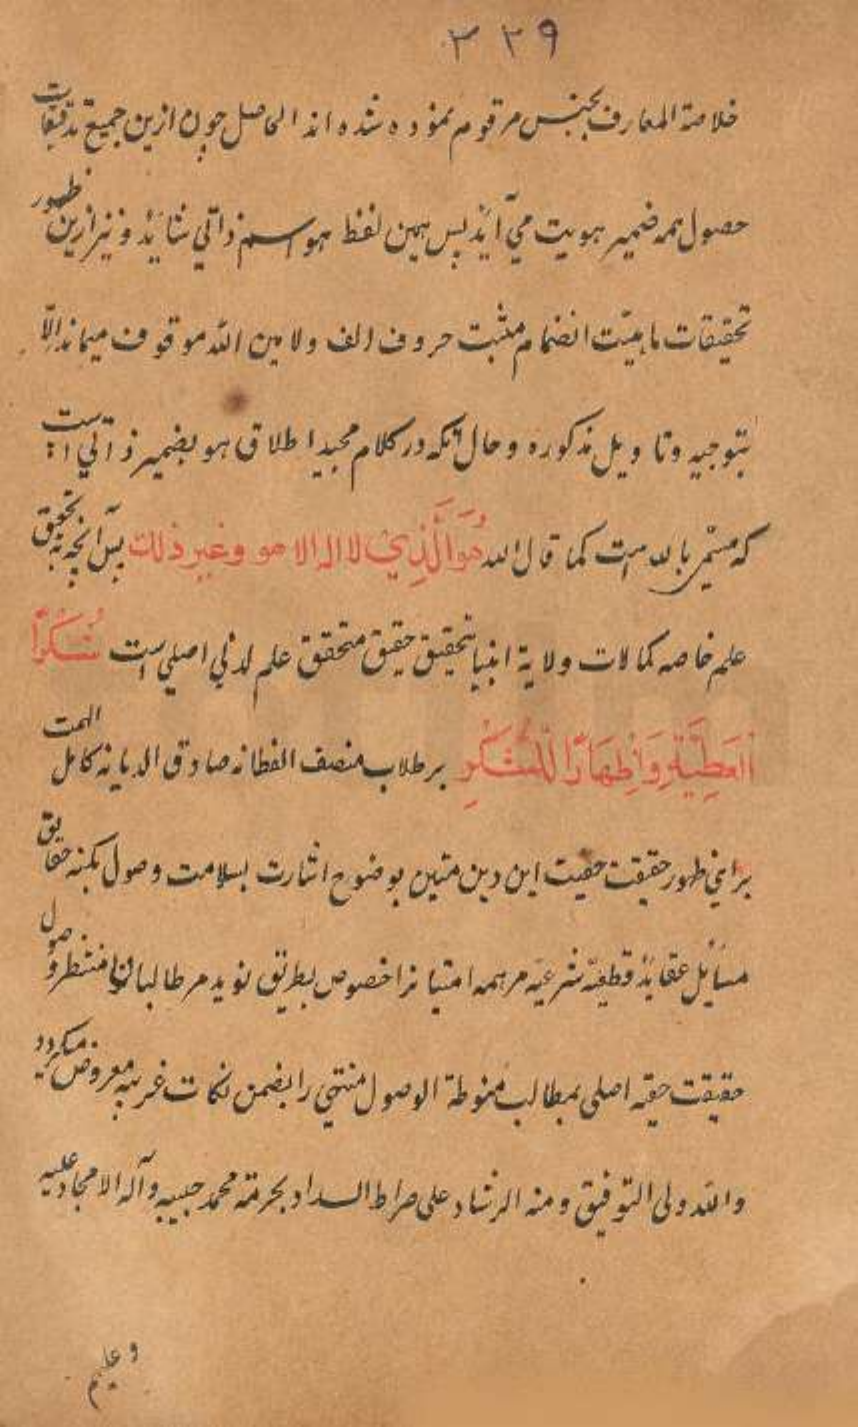 ۳۳۹
خلاصة المعارف بجنس مرقوم نموده شده اند الحاصل چون ازین جمیع تدقیقات
حصول همه ضمیر هویت می آید پس همین لفظ هو اسم ذاتی شاید و نیز ازین ظهور
تحقیقات ماهیت انضمام مثبت حروف الف و لامین الله موقوف میماند الّا
بتوجیه و تاویل مذکوره و حال آنکه در کلام مجید اطلاق هو بضمیر ذاتی است
که بالله است کما قال الله هُوَ الَّذِي لا اله الا هو وغیر ذلك پس آنچه به تحقیق
علم خاصه کمالات ولایة انبیا بتحقیق حقیق متحقق علم لدنی اصلی است شُكْرًا
الْعَطِيَّةِ وَاِظْهَارًا لِلشُّكْرِ بر طلاب منصف الفطانه صادق الدیانه کامل الهمت
برای ظهور حقیقت حقیت این دین متین بوضوح اشارت بسلامت وصول بکنه حقایق
مسایل عقاید قطعیّه شرعیّه مر همه امتیانرا خصوص بطریق نوید مر طالبان منتظر وصول
حقیقت حقه اصلی بمطالب منوطة الوصول منتهی را بضمن نکات غریبه معروض میگردد
والله ولی التوفیق ومنه الرشاد علی صراط السداد بحرمة محمد حبیبه وآله الامجاد علیه
و علیهم